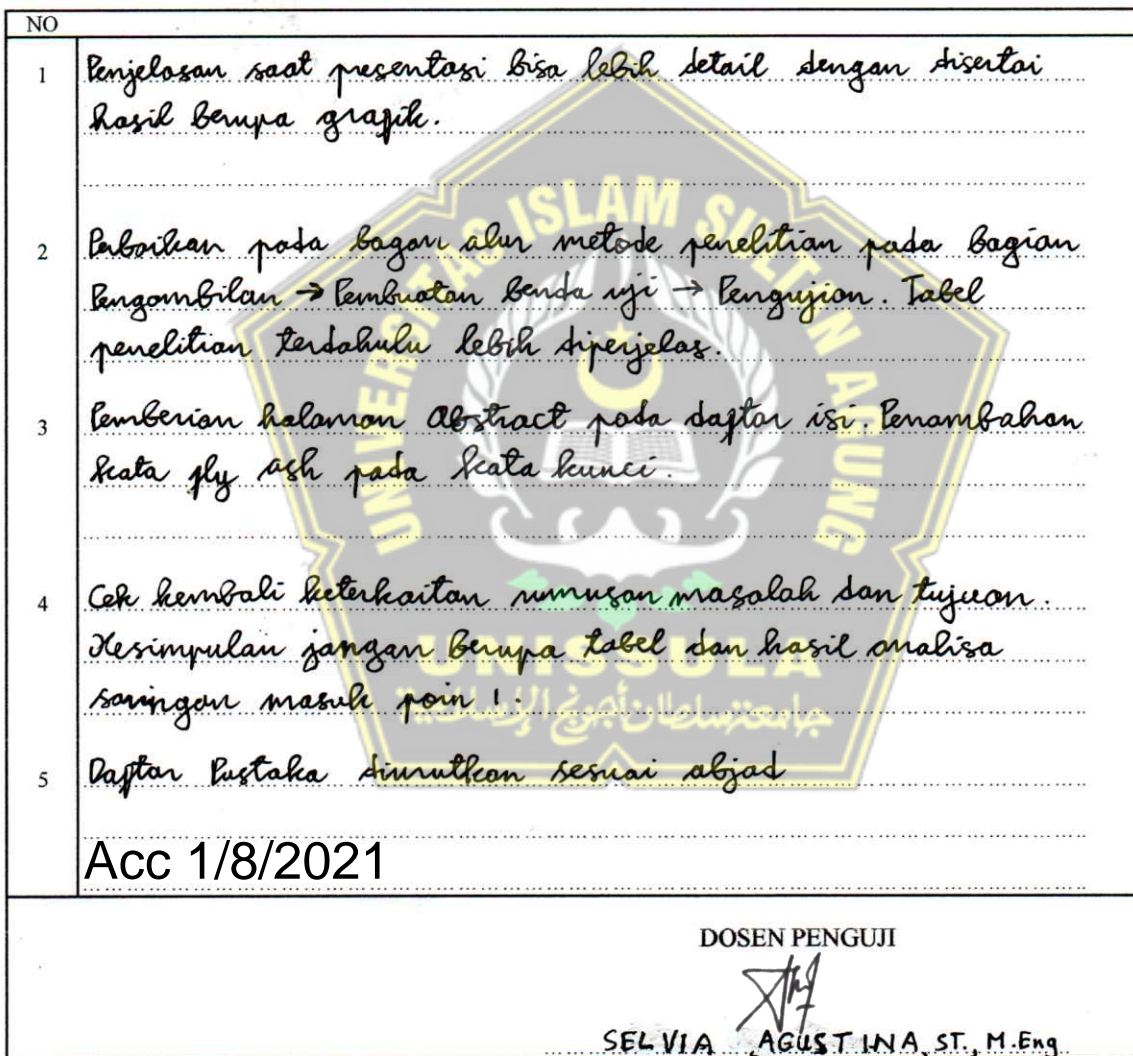 NO
1 Penjelasan saat presentasi bisa lebih detail dengan disertai
hasil berupa grafik.
2 Perbaikan pada bagan alur metode penelitian pada bagian
Pengambilan → Pembuatan benda uji → Pengujian. Tabel
penelitian terdahulu lebih diperjelas.
3 Pemberian halaman Abstract pada daftar isi. Penambahan
kata fly ash pada kata kunci.
4 Cek kembali keterkaitan rumusan masalah dan tujuan.
Kesimpulan jangan berupa tabel dan hasil analisa
saringan masuk poin 1.
5 Daftar Pustaka diurutkan sesuai abjad
Acc 1/8/2021
UNIVERSITAS ISLAM SULTAN AGUNG
UNISSULA
جامعة سلطان أجونج الإسلامية
DOSEN PENGUJI
SELVIA AGUSTINA, ST., M.Eng